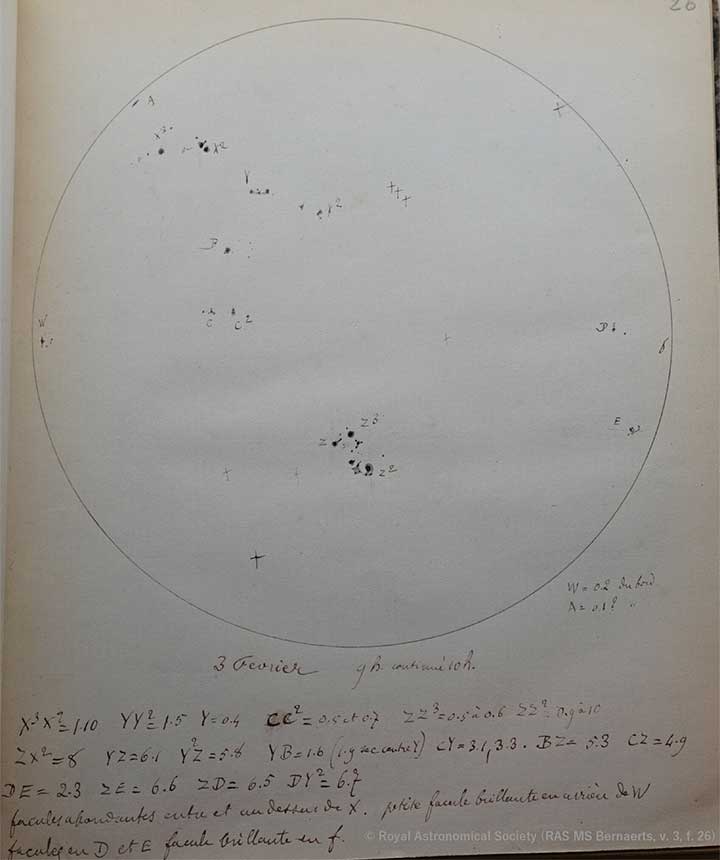 26
A
X³
X²
Y
Y²
B
C C²
W
D
f
E
Z³
Z
Z²
W = 0.2 du bord
A = 0.1? "
3 Fevrier 9h. continué 10h.
X³X² = 1.10 YY² = 1.5 Y = 0.4 CC² = 0.5 et 0.7 ZZ³ = 0.5 à 0.6 ZZ² = 0.9 à 10
ZX² = 8 YZ = 6.1 Y²Z = 5.8 YB = 1.6 (1.9 CY = 3.1, 3.3. BZ = 5.3 CZ = 4.9
DE = 2.3 ZE = 6.6 ZD = 6.5 DY² = 6.7
facules abondantes entre et au dessus de X. petite facule brillante en arrière de W
facules en D et E facule brillante en f.
© Royal Astronomical Society (RAS MS Bernaerts, v. 3, f. 26)